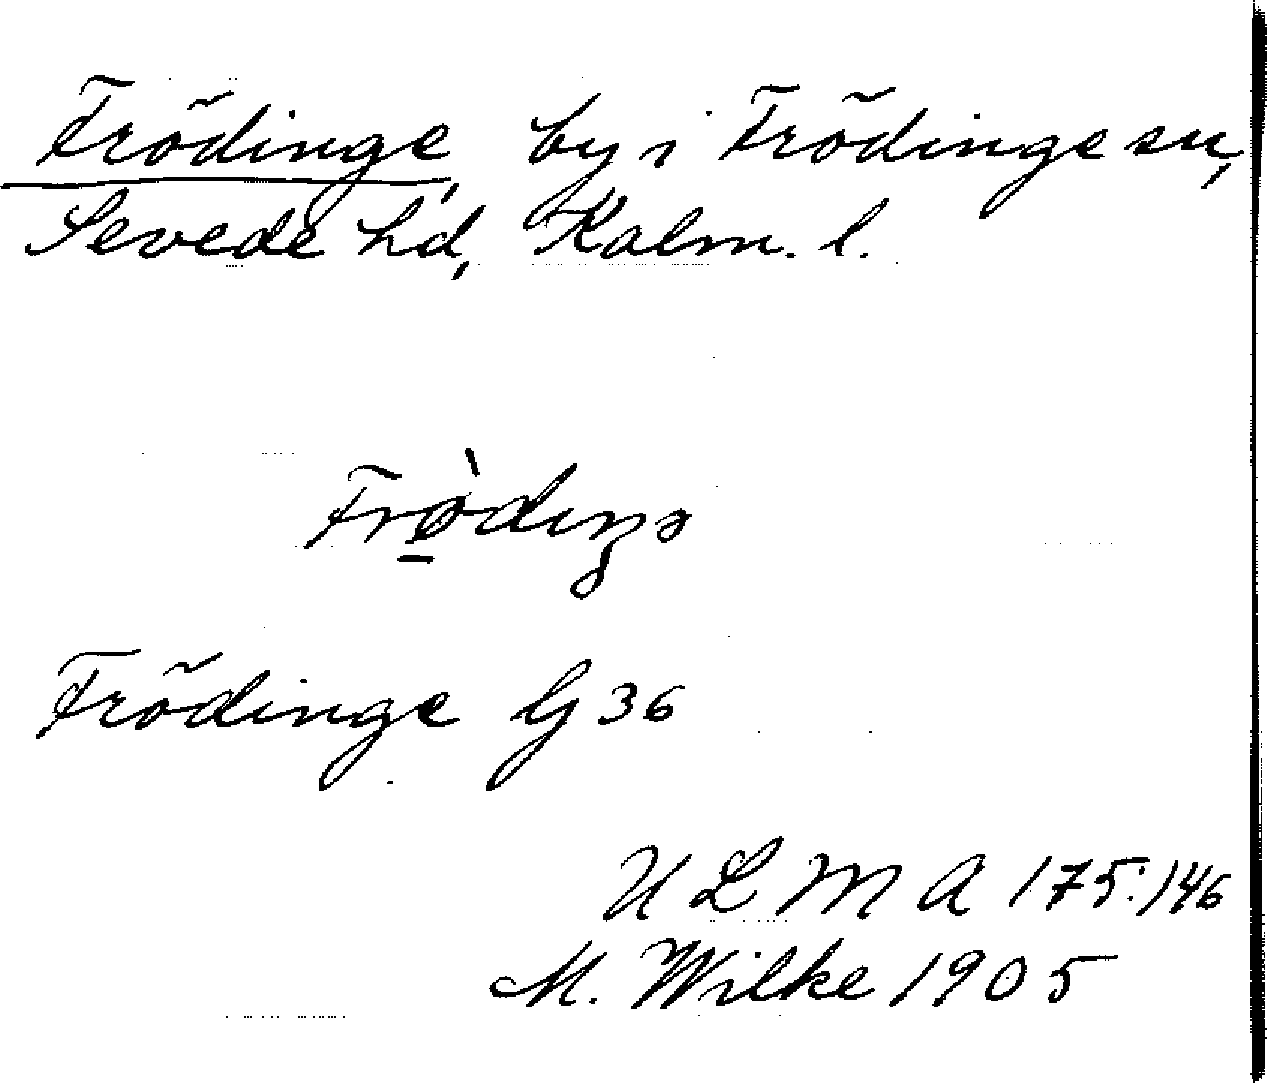 Frödinge, by i Frödinge sn,
Sevede hd, Kalm. l.
Frø̀dıŋə
Frödinge G 36
U L M A 175:146
M. Wilke 1905